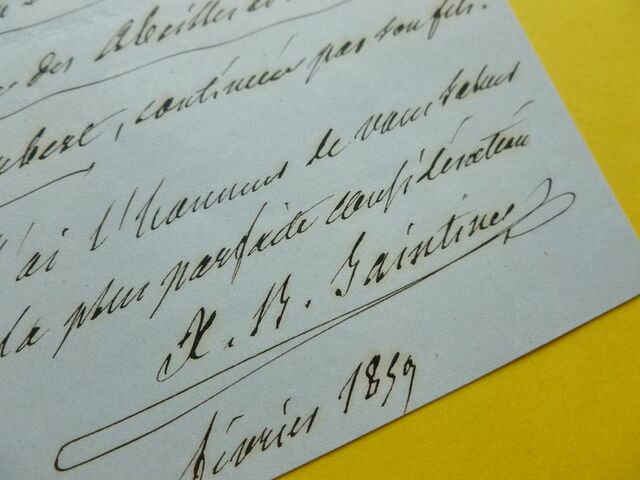 des Abeilles
, continuée par son fils.
J'ai l'honneur de vous saluer
la plus parfaite considération
X. B. Saintine
février 1859